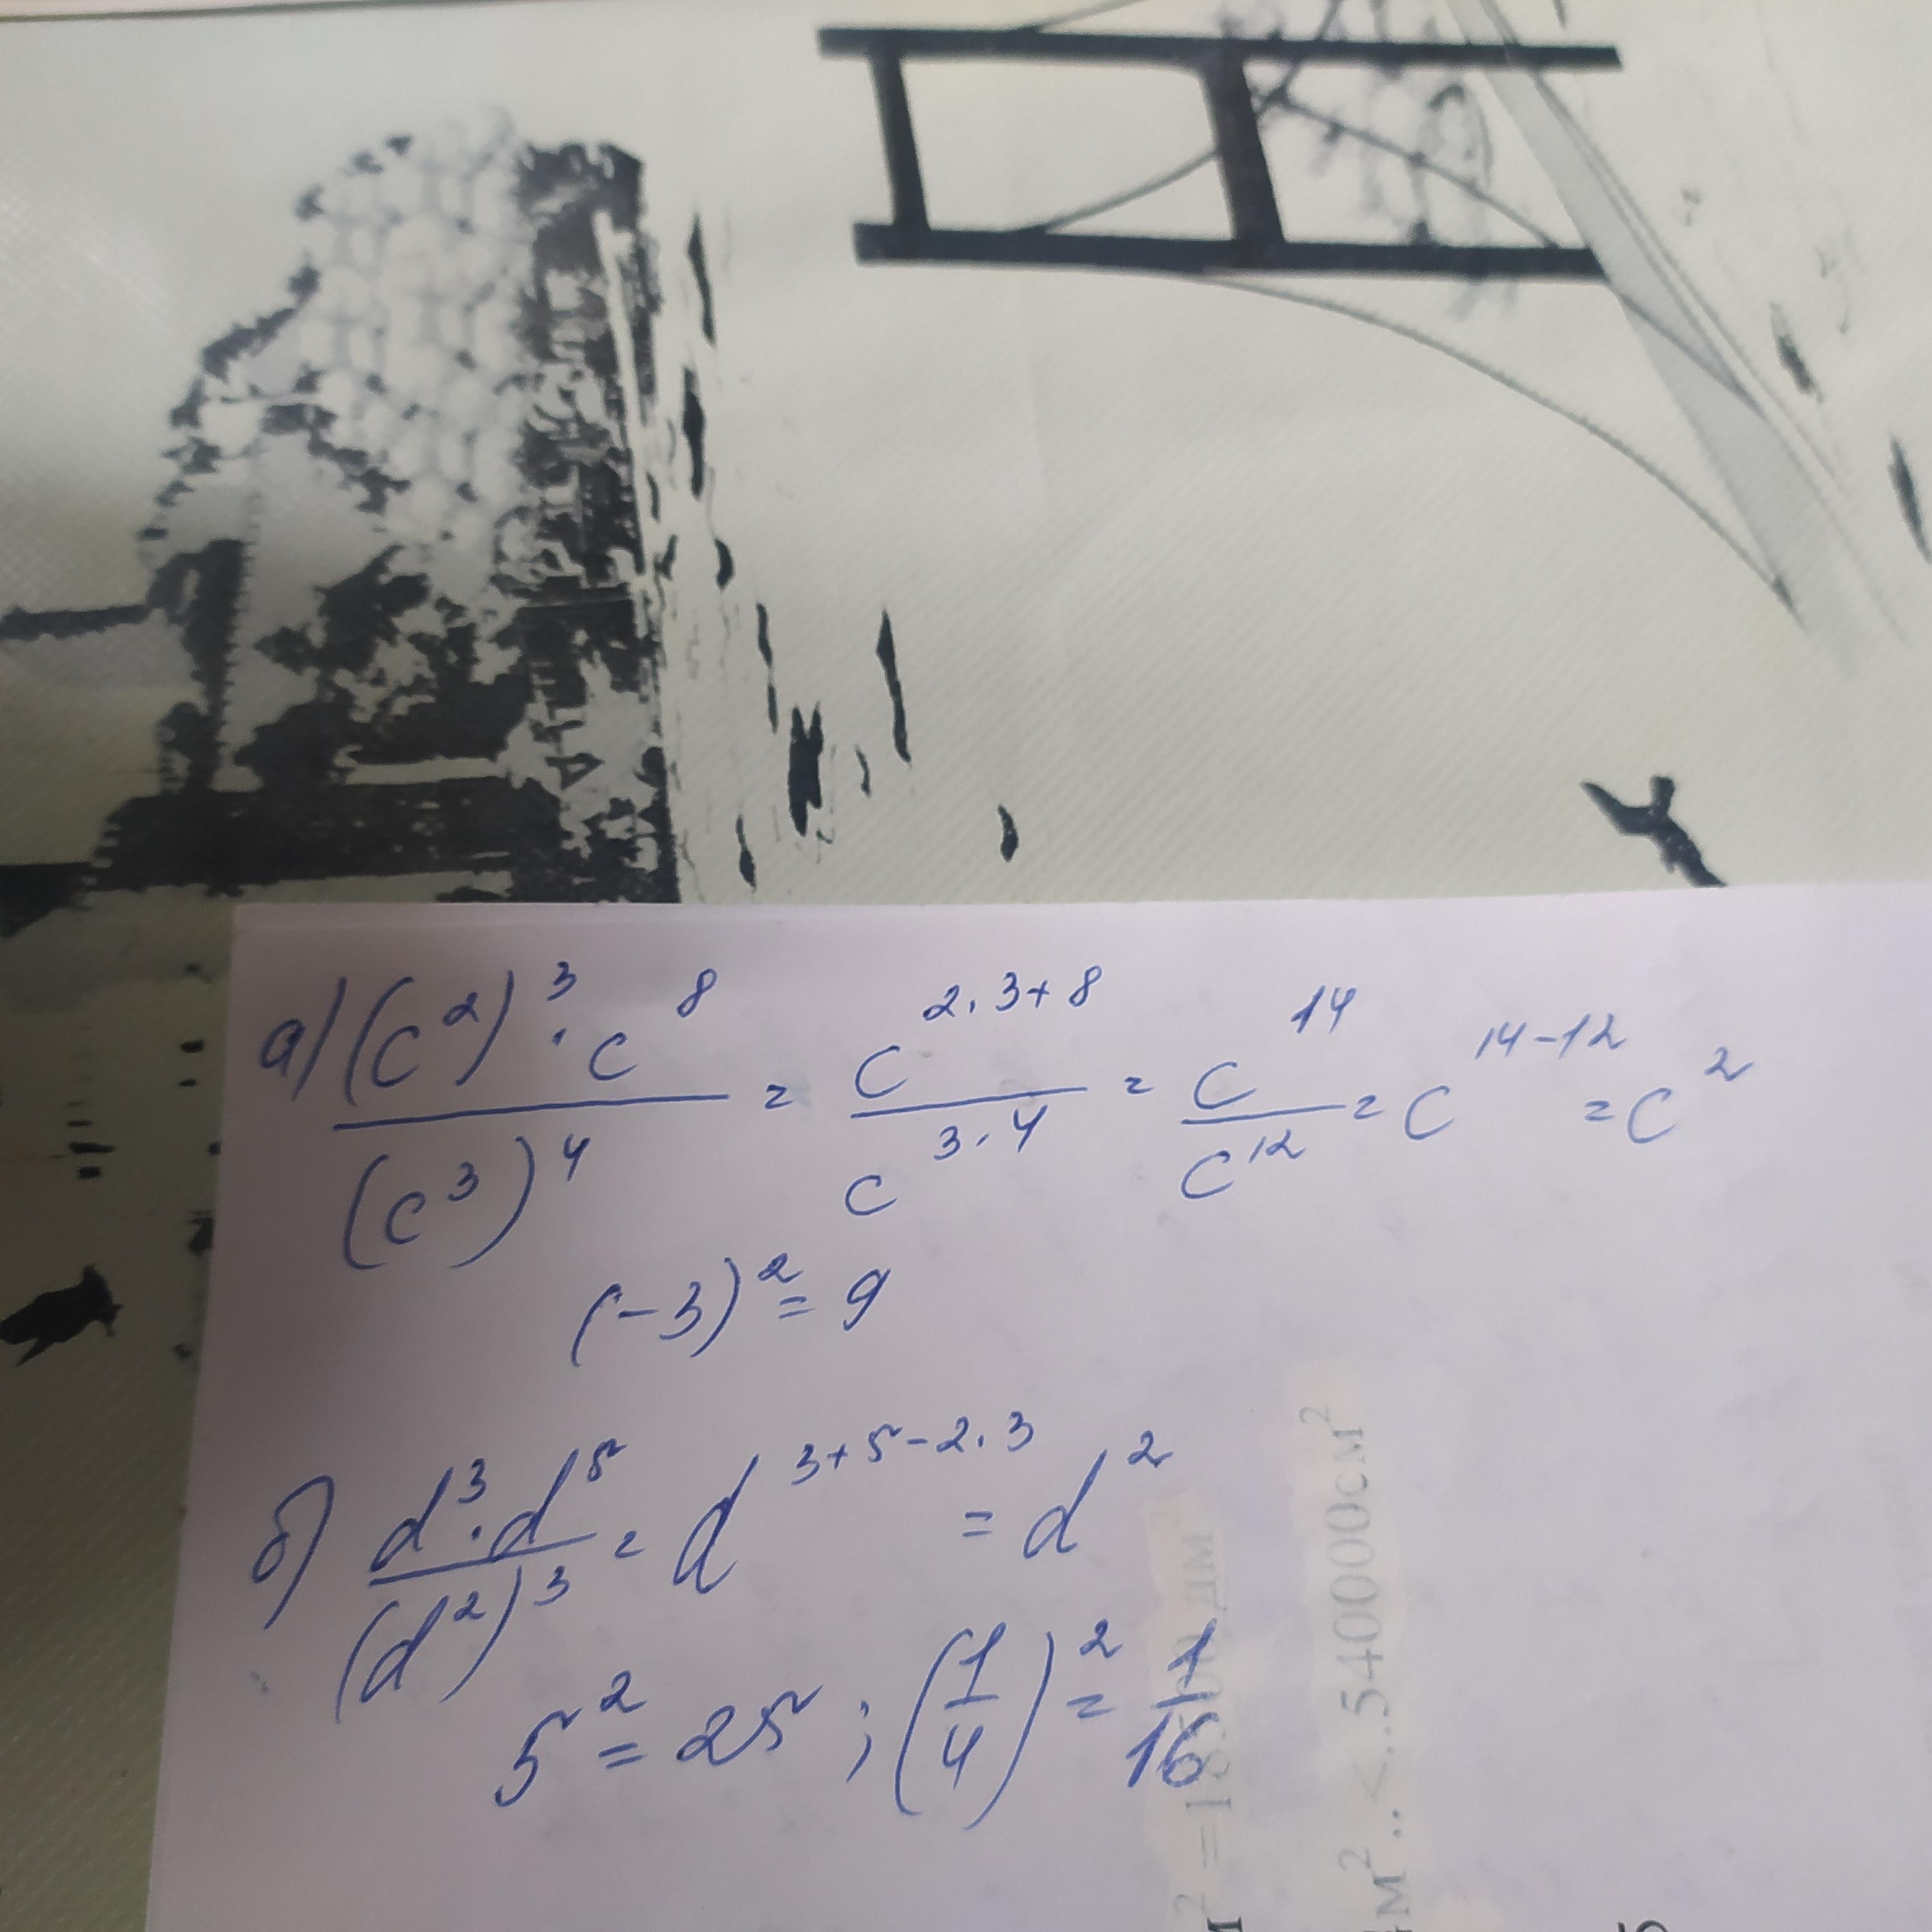 а) (c²)³ · c⁸ / (c³)⁴ = c^(2·3+8) / c^(3·4) = c¹⁴ / c¹² = c^(14-12) = c²
(-3)² = 9
б) d³ · d⁵ / (d²)³ = d^(3+5-2·3) = d²
5² = 25 ; (1/4)² = 1/16
м² ..<..5400000см²